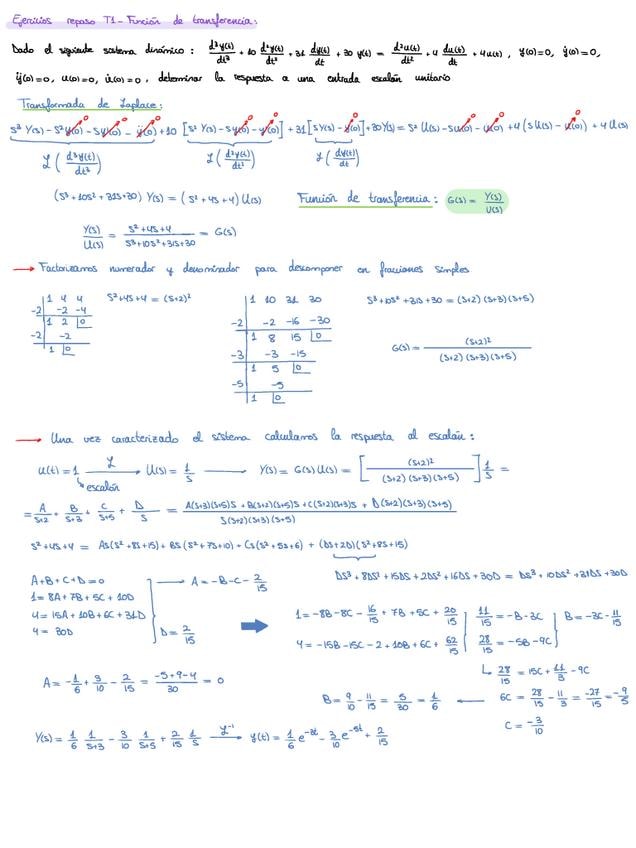 Ejercicios repaso T1 - Función de transferencia:
Dado el siguiente sistema dinámico: d³y(t)/dt³ + 10 d²y(t)/dt² + 31 dy(t)/dt + 30 y(t) = d²u(t)/dt² + 4 du(t)/dt + 4u(t), y(0)=0, ẏ(0)=0,
ÿ(0)=0, u(0)=0, u̇(0)=0, determinar la respuesta a una entrada escalón unitario
Transformada de Laplace:
0 0 0 0 0 0 0 0 0
S³ Y(s) - S² y(0) - S ẏ(0) - ÿ(0) + 10 [S² Y(s) - S y(0) - ẏ(0)] + 31 [S Y(s) - y(0)] + 30 Y(s) = S² U(s) - S u(0) - u̇(0) + 4 (S U(s) - u(0)) + 4 U(s)
ℒ(d³y(t)/dt³) ℒ(d²y(t)/dt²) ℒ(dy(t)/dt)
(S³ + 10S² + 31S + 30) Y(s) = (S² + 4S + 4) U(s) Función de transferencia: G(s) = Y(s)/U(s)
Y(s)/U(s) = (S² + 4S + 4)/(S³ + 10S² + 31S + 30) = G(s)
→ Factorizamos numerador y denominador para descomponer en fracciones simples
1 4 4 S² + 4S + 4 = (S+2)² 1 10 31 30 S³ + 10S² + 31S + 30 = (S+2)(S+3)(S+5)
-2 -2 -4 -2 -2 -16 -30
1 2 0 1 8 15 0
-2 -2 -3 -3 -15 G(s) = (S+2)²/((S+2)(S+3)(S+5))
1 0 1 5 0
-5 -5
1 0
→ Una vez caracterizado el sistema calculamos la respuesta al escalón:
u(t) = 1 ℒ→ U(s) = 1/S → Y(s) = G(s) U(s) = [(S+2)²/((S+2)(S+3)(S+5))] 1/S =
escalón
= A/(S+2) + B/(S+3) + C/(S+5) + D/S = (A(S+3)(S+5)S + B(S+2)(S+5)S + C(S+2)(S+3)S + D(S+2)(S+3)(S+5))/(S(S+2)(S+3)(S+5))
S² + 4S + 4 = AS(S² + 8S + 15) + BS(S² + 7S + 10) + CS(S² + 5S + 6) + (DS + 2D)(S² + 8S + 15)
DS³ + 8DS² + 15DS + 2DS² + 16DS + 30D = DS³ + 10DS² + 31DS + 30D
A + B + C + D = 0 → A = -B - C - 2/15
1 = 8A + 7B + 5C + 10D
4 = 15A + 10B + 6C + 31D
4 = 30D D = 2/15
1 = -8B - 8C - 16/15 + 7B + 5C + 20/15 11/15 = -B - 3C B = -3C - 11/15
4 = -15B - 15C - 2 + 10B + 6C + 62/15 28/15 = -5B - 9C
28/15 = 15C + 11/3 - 9C
A = -1/6 + 3/10 - 2/15 = (-5 + 9 - 4)/30 = 0 B = 9/10 - 11/15 = 5/30 = 1/6 ← 6C = 28/15 - 11/3 = -27/15 = -9/5
C = -3/10
Y(s) = 1/6 1/(S+3) - 3/10 1/(S+5) + 2/15 1/S ℒ⁻¹→ y(t) = 1/6 e^(-3t) - 3/10 e^(-5t) + 2/15